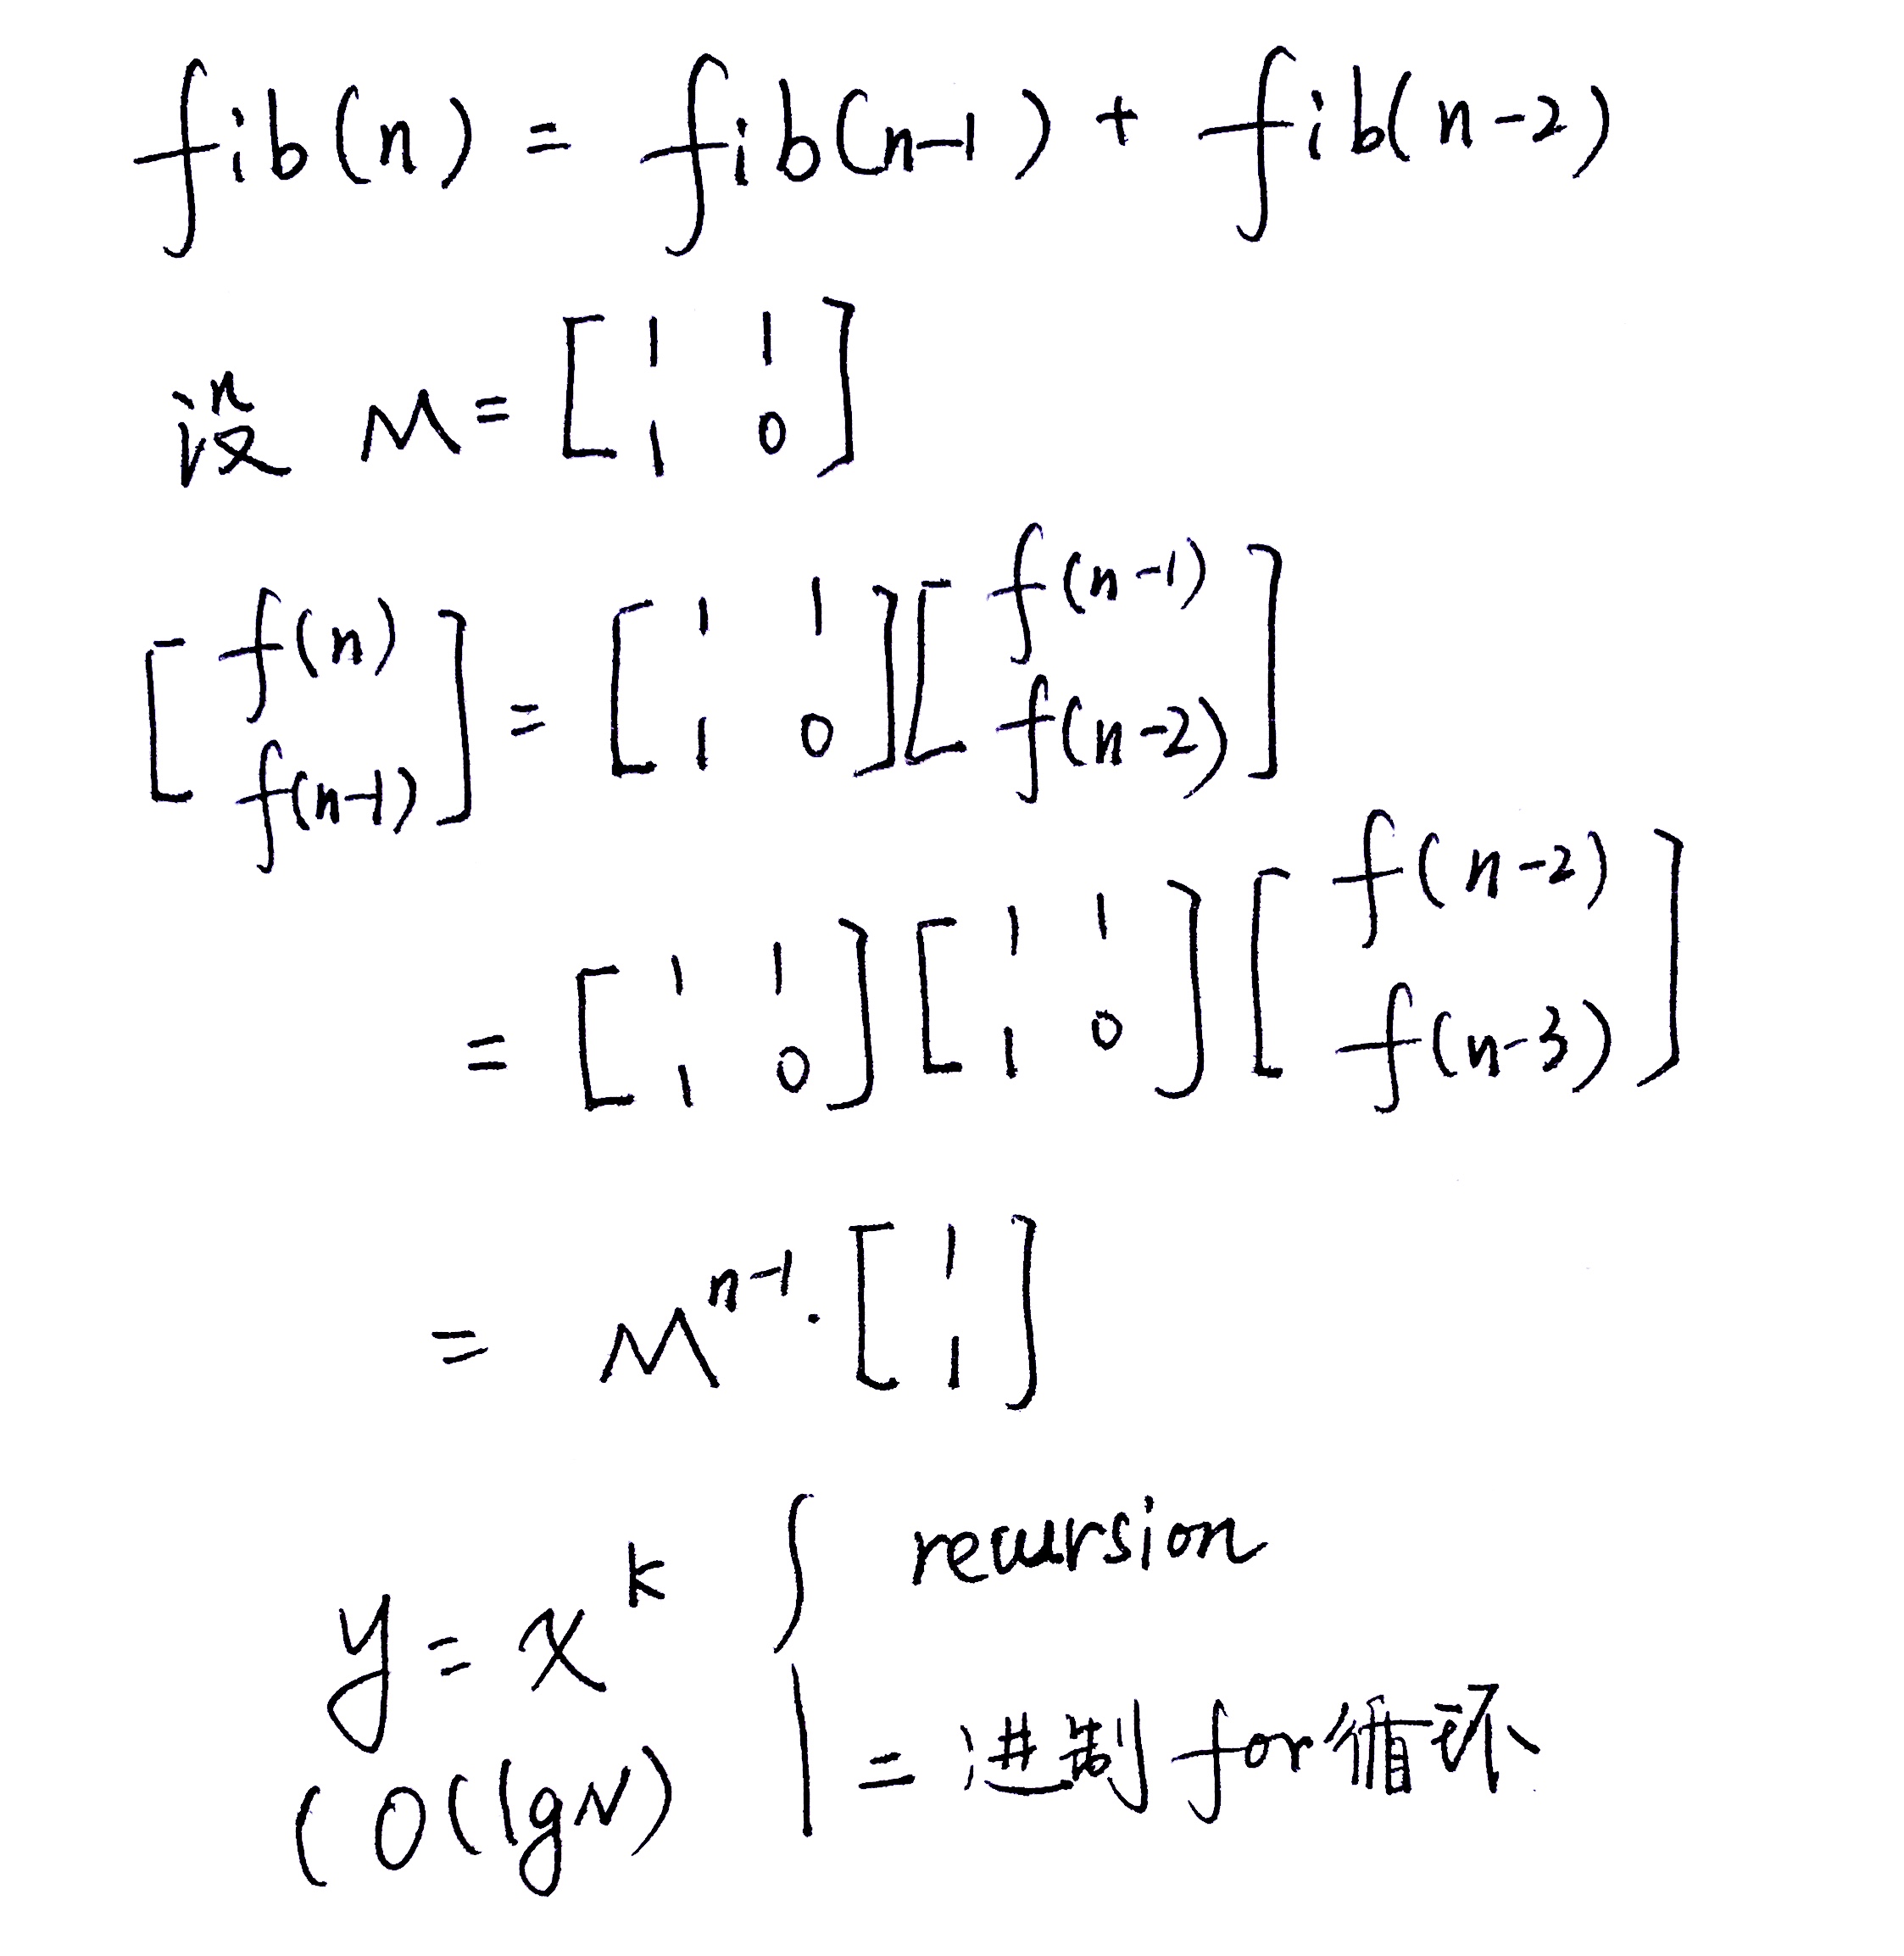 fib(n) = fib(n-1) + fib(n-2)
设 M = [1 1; 1 0]
[f(n); f(n-1)] = [1 1; 1 0][f(n-1); f(n-2)]
= [1 1; 1 0][1 1; 1 0][f(n-2); f(n-3)]
= M^{n-1}·[1; 1]
y = x^k { recursion
(O(lgN) 二进制for循环